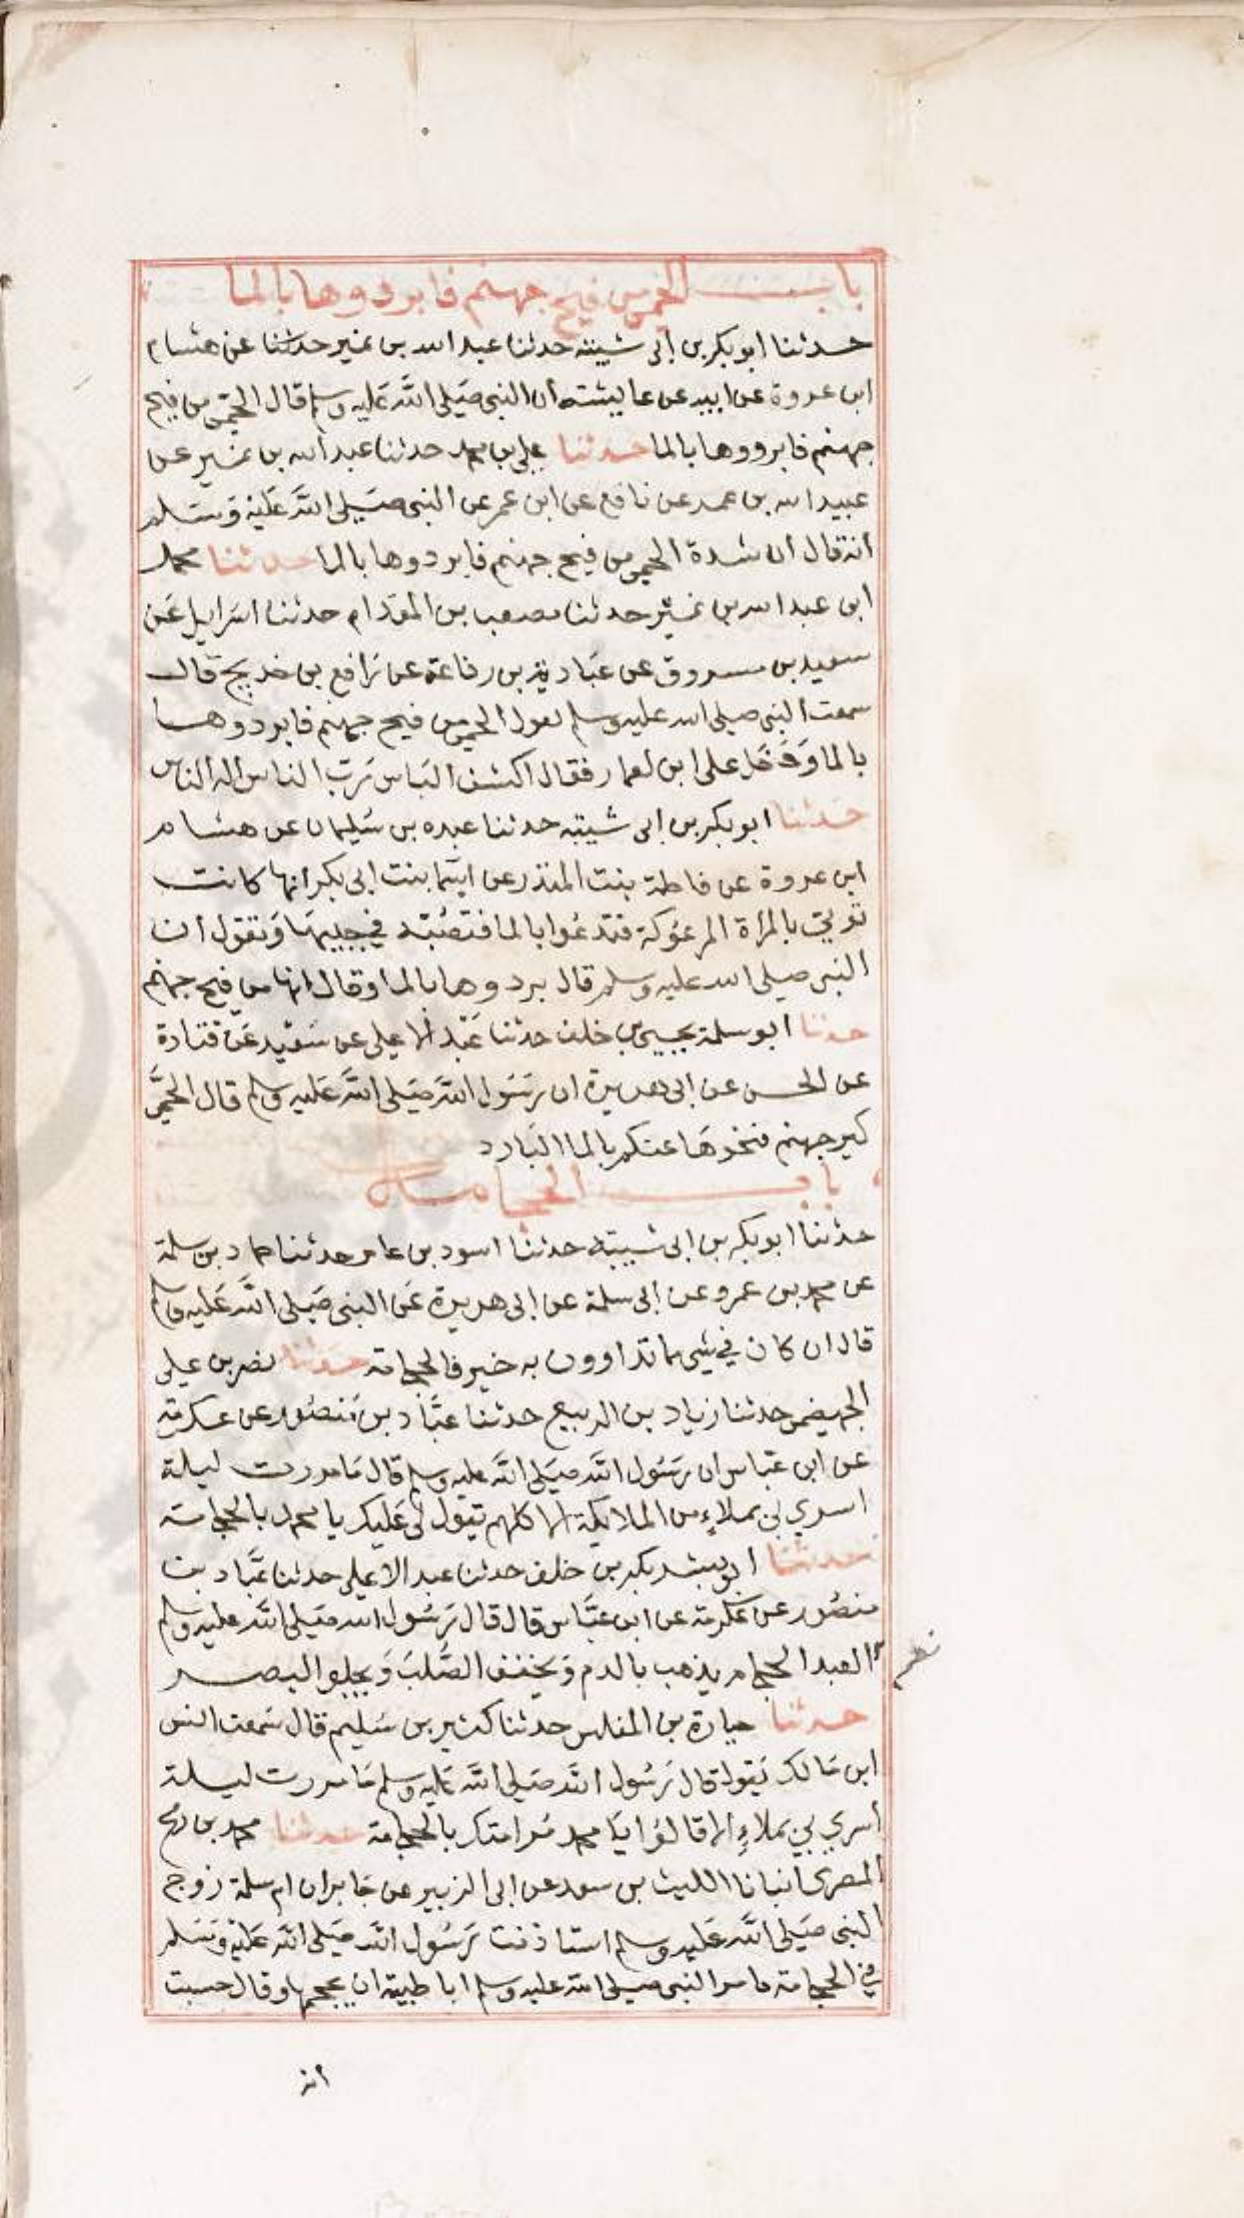 باب الحمى من فيح جهنم فابردوها بالما
حدثنا ابو بكر بن ابى شيبة حدثنا عبد الله بن نمير حدثنا عن هشام
ابن عروة عن ابيه عن عايشة أن النبى صَلى اللَّه عَليه وسلم قال الحمّى من فيح
جهنم فابردوها بالما حدثنا على بن محمد حدثنا عبد الله بن نمير عن
عبيد الله بن عمر عن نافع عن ابن عمر عن النبى صَلى اللَّه عَليه وَسَلم
انه قال ان شدة الحمى من فيح جهنم فابردوها بالما حدثنا محمد
ابن عبد الله بن نمير حدثنا مصعب بن المقدام حدثنا اسَرايل عَن
سعيد بن مسروق عن عَباية بن رفاعة عن رَافع بن خديج قال
سمعت النبى صلى الله عليه وسلم يقول الحمى من فيح جهنم فابردوها
بالما وَدَخَل على ابن لعمار فقال اكشف البَاس رَبّ الناس اله الناس
حَدثنا ابو بكر بن ابى شيبه حدثنا عبده بن سُليمان عن هشام
ابن عروة عن فاطمة بنت المنذر عن اسَما بنت ابى بكر انها كانت
توتي بالمراة المرعُوكة فتدعُوا بالما فتصُبّه في جيبهَا وَتقول ان
النبى صلى الله عليه وسلم قال بردوها بالما وقال انها من فيح جهنم
حدثنا ابو سلمة يحيى بن خلف حدثنا عَبْد الاعلى عن سَعيد عَن قتادة
عن الحسن عن ابى هريرة ان رَسُول اللَّه صَلى اللَّه عَليه وسلم قال الحمَّى
كير جهنم فنحوهَا عنكم بالما البَارد
باب الحجامة
حدثنا ابو بكر بن ابى شيبة حدثنا اسود بن عامر حدثنا حماد بن سلمة
عن محمد بن عمرو عن ابى سلمة عن ابى هريرة عَن النبى صَلى اللَّه عَليه وسلم
قال ان كان في شي مما تداوون به خير فالحجامة حدثنا نصر بن على
الجهضمى حدثنا زياد بن الربيع حدثنا عبَّاد بن مَنصُور عن عكرمة
عن ابن عَباس ان رَسُول اللَّه صَلى اللَّه عليه وسلم قال مَا مررت ليلة
اسري بي بملاءٍ من الملايكة الا كلهم يَقول لى عَليك يا محمد بالحجامة
حدثنا ابو بشر بكر بن خلف حدثنا عبد الاعلى حدثنا عَبَّاد بن
منصُور عن عكرمة عن ابن عَبَّاس قال قال رَسُول الله صَلى اللَّه عليه وسلم
نعم
العبد الحجام يذهب بالدم وَيخفف الصُّلبَ وَيجلو البصر
حدثنا جبارة بن المغلس حدثنا كثير بن سُليم قال سَمعت انس
ابن مَالك يَقول قال رَسُول اللَّه صَلى اللَّه عَليه وسلم مَا مررت ليلة
أسري بي بملاءٍ الا قالوُا يَا محمد مُر امتك بالحجامة حدثنا محمد بن رمح
المصرى انبانا الليث بن سعد عن ابى الزبير عن جَابر ان ام سلمة زوج
النبى صَلى اللَّه عَليه وسلم استاذنت رَسُول اللَّه صَلى اللَّه عَليه وَسَلم
في الحجامة فامر النبى صلى الله عليه وسلم ابا طيبة ان يحجمها وقال حسبت
انه